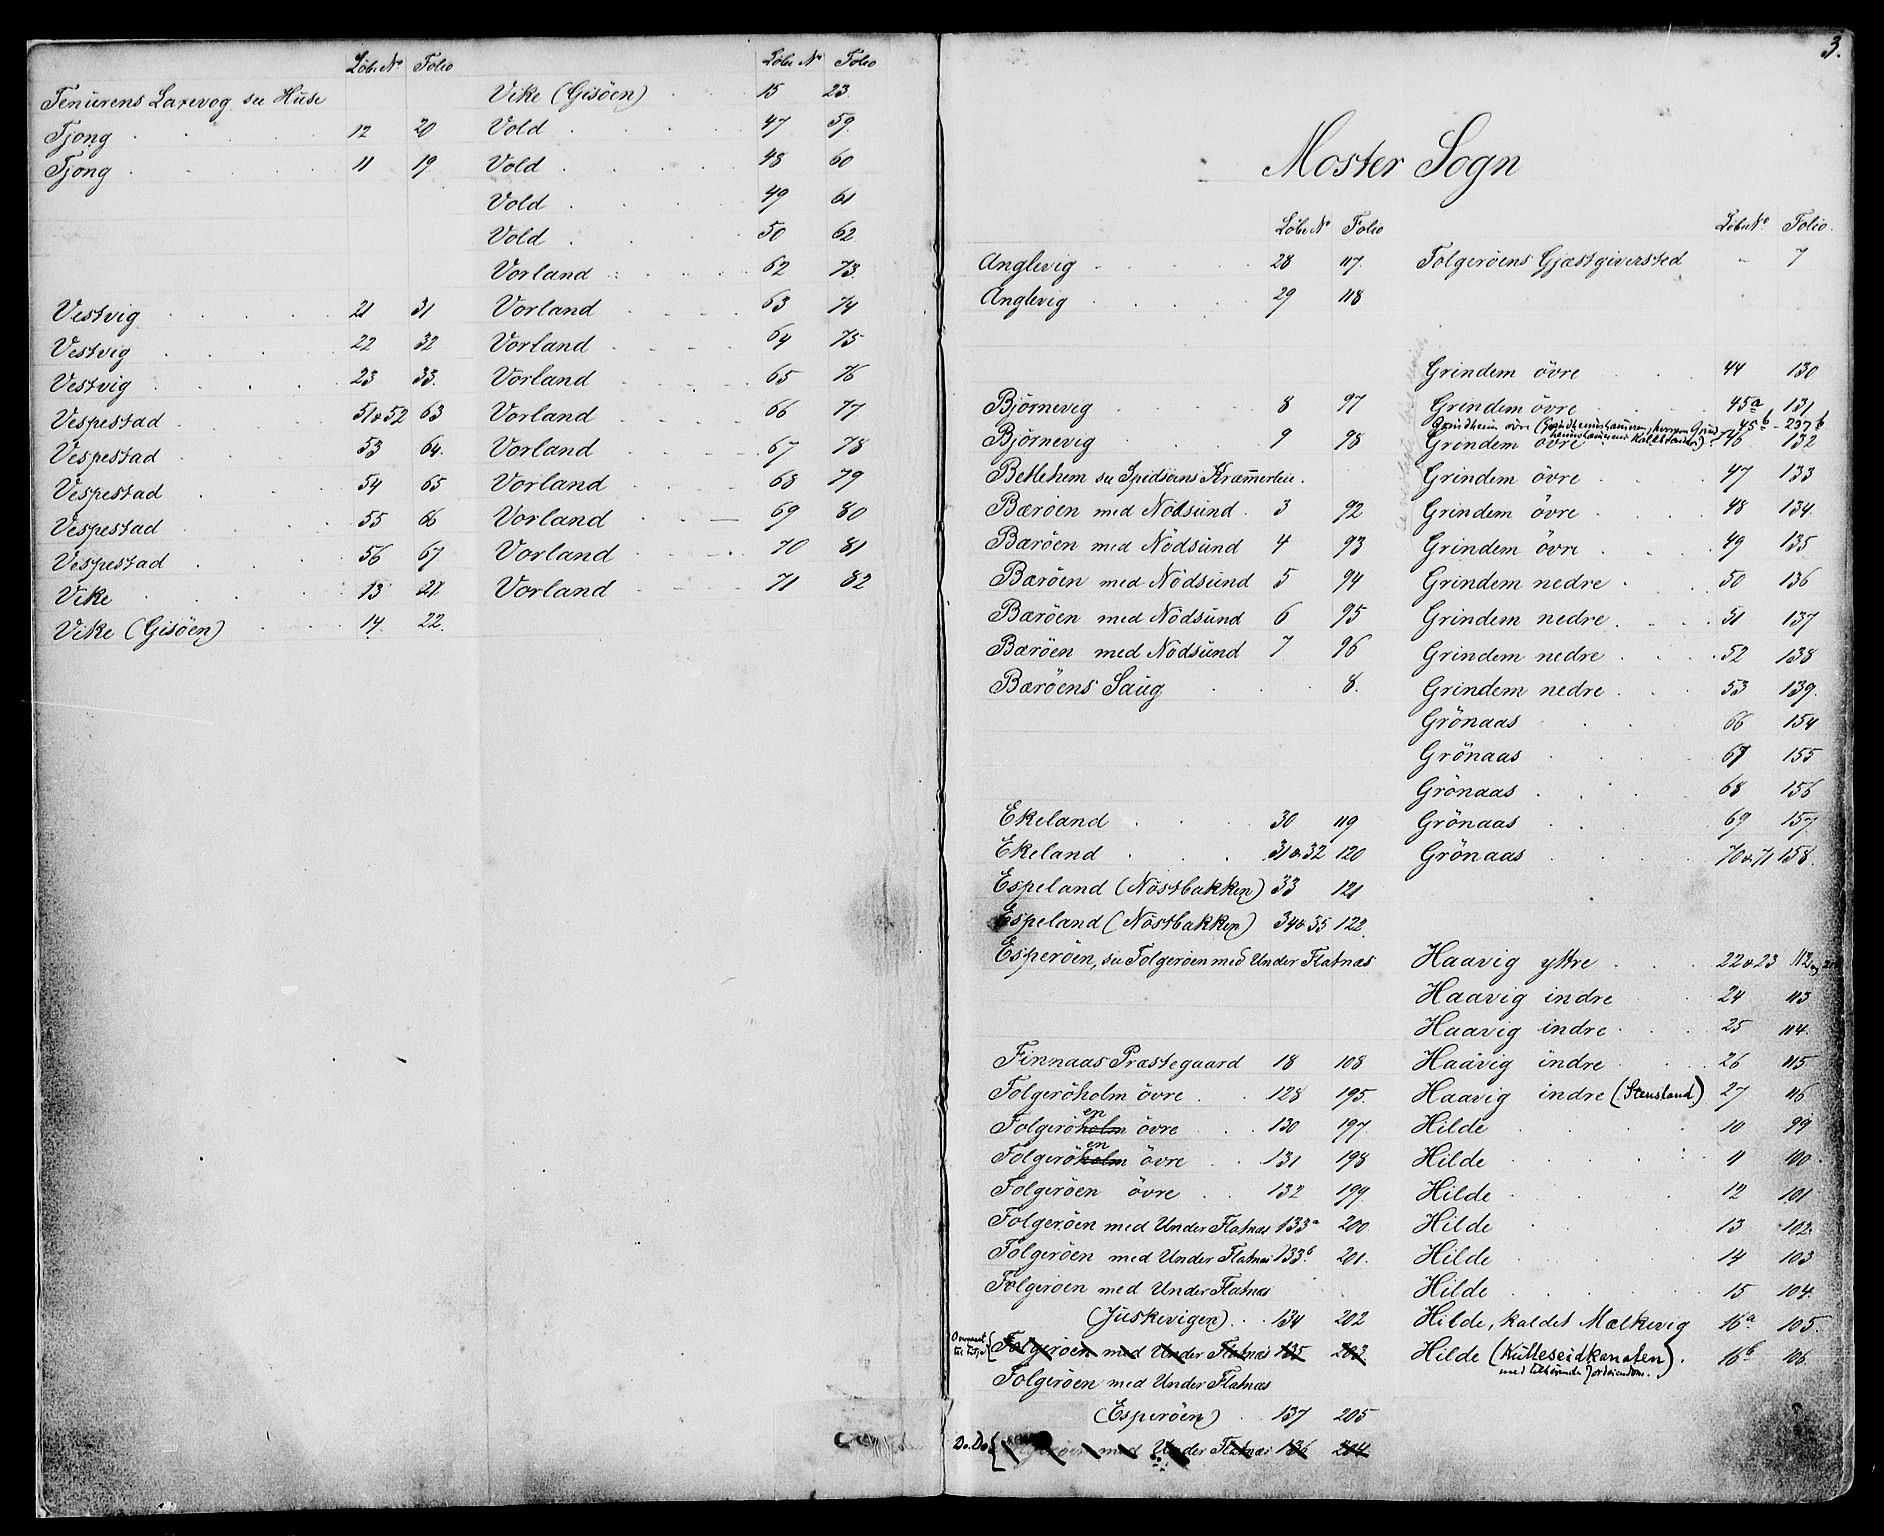 Løbe No Folio
Tenurens Laxevog see Huse
Tjong 12 20
Tjong 11 19
Vestvig 21 31
Vestvig 22 32
Vestvig 23 33.
Vespestad 51 & 52 63
Vespestad 53 64.
Vespestad 54 65
Vespestad 55 66
Vespestad 56 67
Vike 13 21.
Vike (Gisöen) 14. 22.
Løbe No Folio
Vike (Gisöen) 15 23.
Vold 47 59.
Vold 48 60
Vold 49 61
Vold 50 62
Vorland 62 73
Vorland 63 74
Vorland 64 75
Vorland 65 76
Vorland 66 77
Vorland 67 78
Vorland 68 79
Vorland 69 80
Vorland 70 81
Vorland 71 82
3.
Moster Sogn
Løbe No Folio
Anglevig 28 117.
Anglevig 29 118
Bjørnevig 8 97
Bjørnevig 9 98
Betlehem see Spidsöens Kræmerleie.
Bæröen med Nödsund 3 92
Bæröen med Nödsund 4 93
Bæröen med Nödsund 5 94
Bæröen med Nödsund 6 95
Bæröen med Nödsund 7 96
Bæröens Saug 8.
Ekeland 30 119
Ekeland 31 & 32 120
Espeland (Nöstbakken) 33 121
Espeland (Nöstbakken) 34 & 35 122
Esperöen, see Folgeröen med Under Flatnæs
Finnaas Præstegaard 18 108
Folgeröholm övre 128 195.
en
Folgeröholm övre 130 197.
en
Folgeröholm övre 131 198
Folgeröen övre 132 199
Folgeröen med Under Flatnæs 133a 200
Folgeröen med Under Flatnæs 133b. 201.
Folgeröen med Under Flatnæs
(Juskevigen) 134 202
Folgeröen med Under Flatnæs 135 203
Folgeröen med Under Flatnæs
(Esperöen) 137 205
Do. Do. med Under Flatnæs 136 204
Løbe No. Folio.
Folgeröens Gjæstgiversted - 7
Grindem övre 44 130
Grindem övre 45a 131
Grindheim övre 45b 237b
Grindem övre 46 132
Grindem övre 47 133
Grindem övre 48 134.
Grindem övre 49 135
Grindem nedre 50 136
Grindem nedre 51 137
Grindem nedre 52 138
Grindem nedre 53 139.
Grönaas 66 154
Grönaas 67 155
Grönaas 68 156
Grönaas 69 157.
Grönaas 70 & 71 158.
Haavig yttre 22 & 23 112
Haavig indre 24 113
Haavig indre 25 114.
Haavig indre 26 115
Haavig indre (Stensland) 27 116
Hilde 10 99
Hilde 11 100.
Hilde 12 101
Hilde 13 102.
Hilde 14 103
Hilde 15 104.
Hilde, kaldet Mælkevig 16a 105.
Hilde (Kulleseidkanalen 16b 106.
med tilhörende Jordeiendom.)